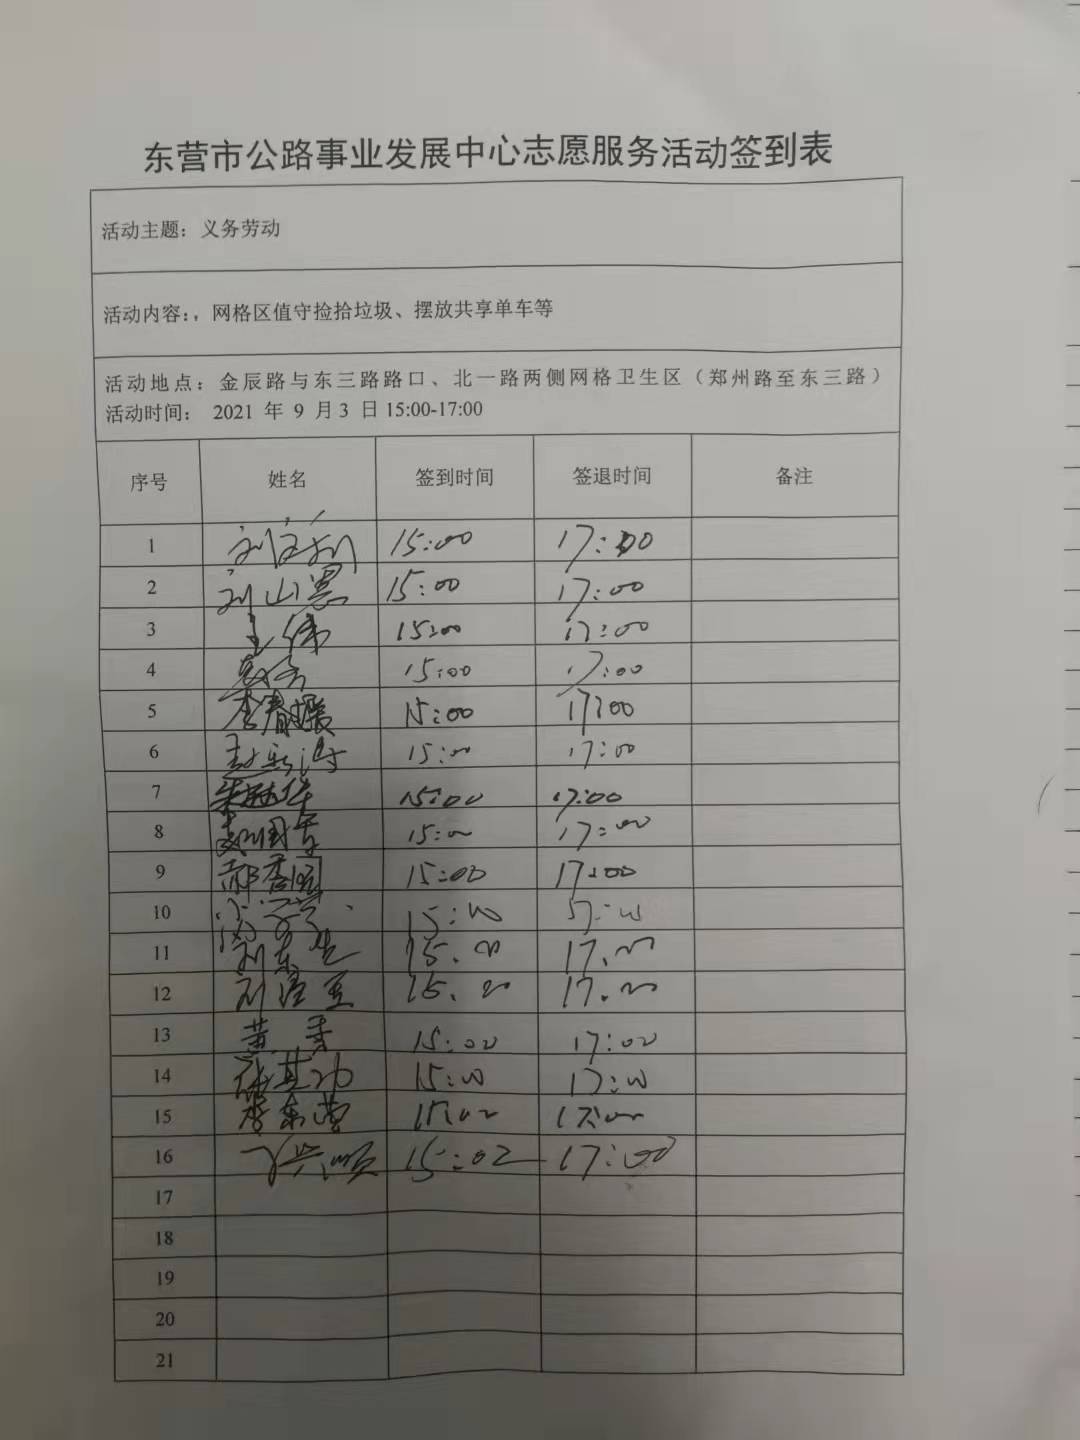 东营市公路事业发展中心志愿服务活动签到表
活动主题：义务劳动
活动内容：，网格区值守捡拾垃圾、摆放共享单车等
活动地点：金辰路与东三路路口、北一路两侧网格卫生区（郑州路至东三路）
活动时间： 2021 年 9 月 3 日 15:00-17:00
序号 姓名 签到时间 签退时间 备注
1 15:00 17:00
2 15:00 17:00
3 王伟 15:00 17:00
4 15:00 17:00
5 李春振 15:00 17:00
6 15:00 17:00
7 15:00 17:00
8 15:00 17:00
9 15:00 17:00
10 15:00 17:00
11 刘东生 15.00 17.00
12 15.00 17.00
13 黄 15:00 17:00
14 15:00 17:00
15 李东营 15:02 17:00
16 兴顺 15:02 17:00
17
18
19
20
21